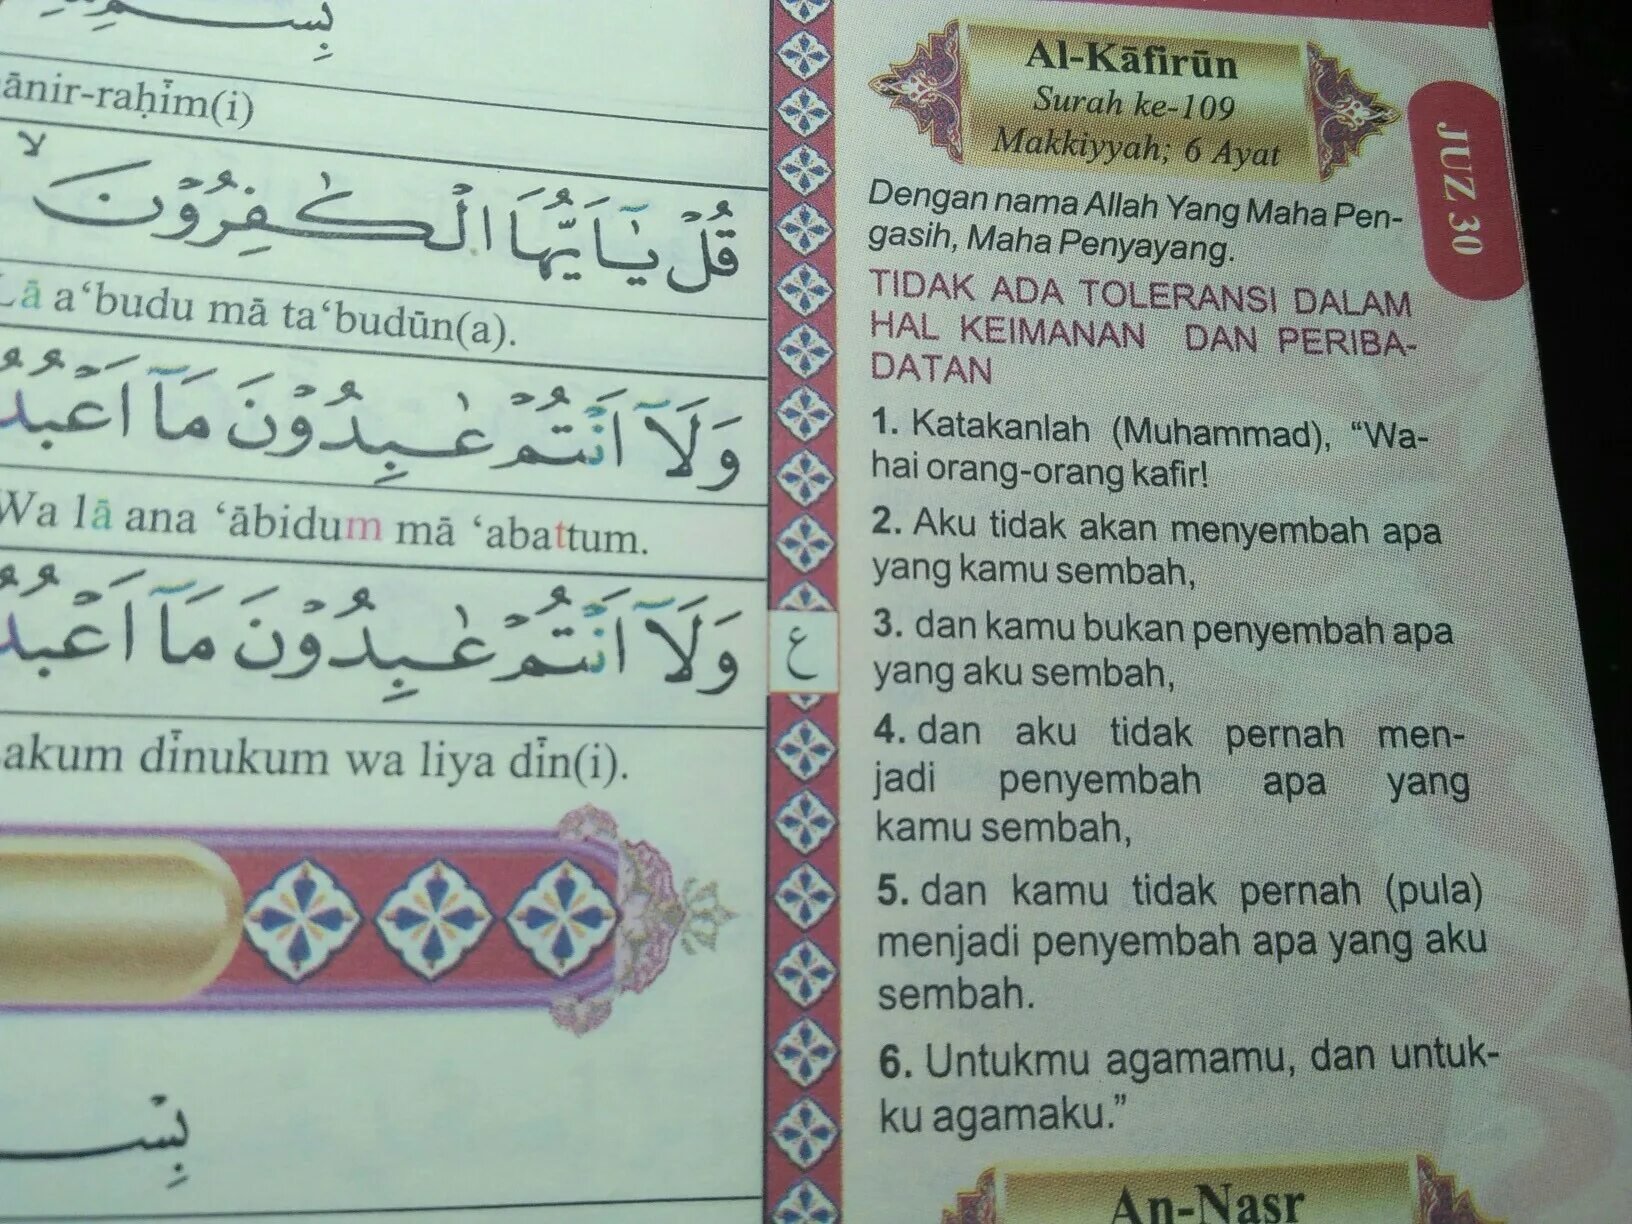 بِسْمِ
ānir-raḥīm(i)
قُلْ يٰٓاَيُّهَا الْكٰفِرُوْنَ ۙ
Lā a‘budu mā ta‘budūn(a).
وَلَآ اَنْتُمْ عٰبِدُوْنَ مَآ اَعْبُدُ
Wa lā ana ‘ābidum mā ‘abattum.
وَلَآ اَنْتُمْ عٰبِدُوْنَ مَآ اَعْبُدُ
akum dīnukum wa liya dīn(i).
بِسْ
ع
Al-Kāfirūn
Surah ke-109
Makkiyyah; 6 Ayat
JUZ 30
Dengan nama Allah Yang Maha Pen-
gasih, Maha Penyayang.
TIDAK ADA TOLERANSI DALAM
HAL KEIMANAN DAN PERIBA-
DATAN
1. Katakanlah (Muhammad), “Wa-
hai orang-orang kafir!
2. Aku tidak akan menyembah apa
yang kamu sembah,
3. dan kamu bukan penyembah apa
yang aku sembah,
4. dan aku tidak pernah men-
jadi penyembah apa yang
kamu sembah,
5. dan kamu tidak pernah (pula)
menjadi penyembah apa yang aku
sembah.
6. Untukmu agamamu, dan untuk-
ku agamaku.”
An-Nasr